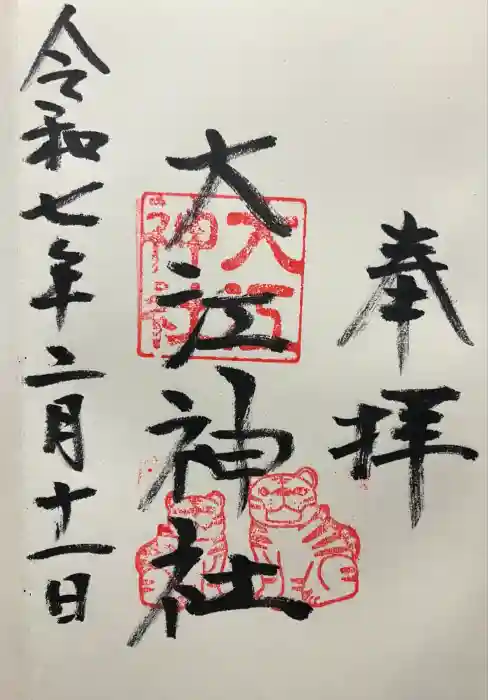 奉拝
大江神社
大江神社
令和七年二月十一日